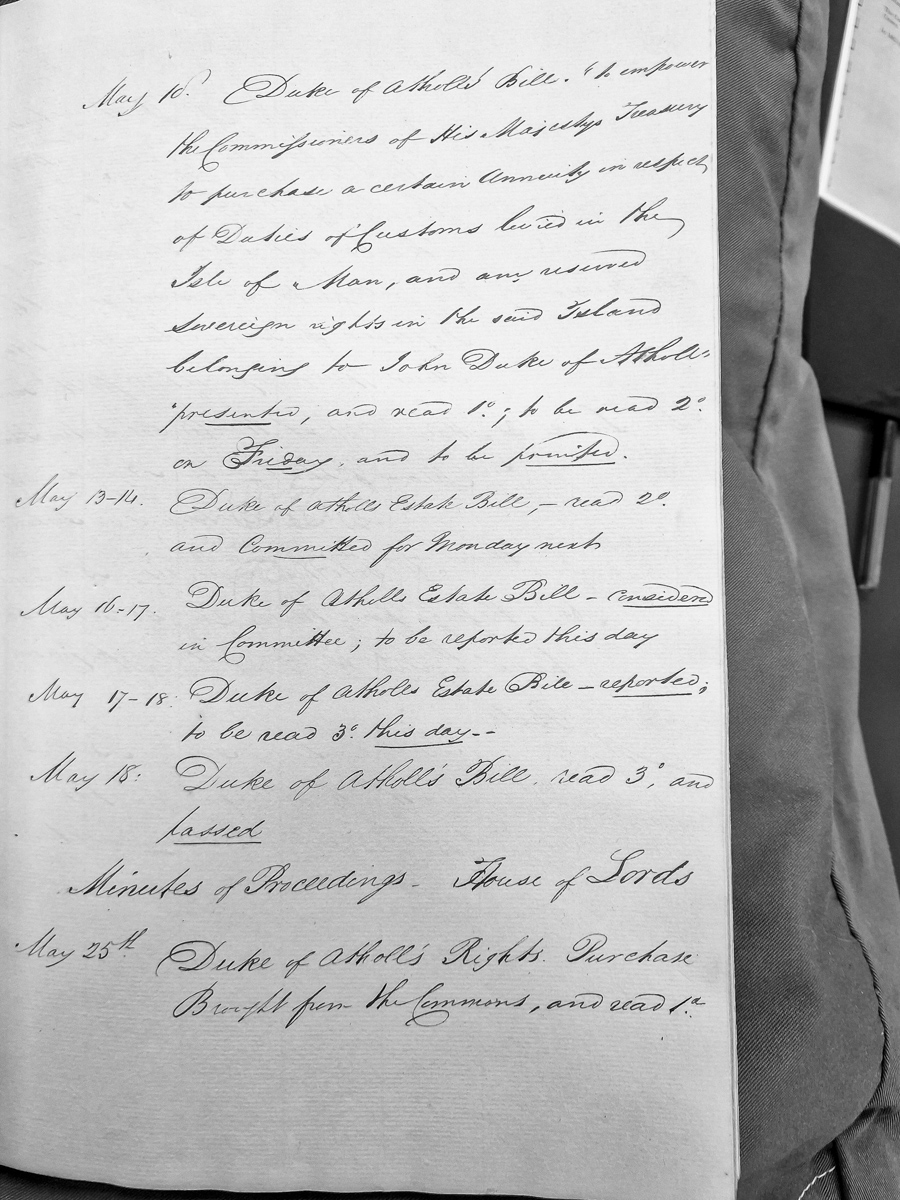 May 10. Duke of Atholl's Bill. "to empower
the Commissioners of His Majestys Treasury
to purchase a certain Annuity in respect
of Duties of Customs levied in the
Isle of Man, and any reserved
Sovereign rights in the said Island
belonging to John Duke of Atholl"
presented, and read 1°.; to be read 2°.
on Friday, and to be printed.
May 13-14. Duke of Atholls Estate Bill, - read 2°.
and Committed for Monday next
May 16-17. Duke of Atholls Estate Bill - considered
in Committee; to be reported this day
May 17-18. Duke of Atholls Estate Bill - reported;
to be read 3°. this day--
May 18: Duke of Atholl's Bill. read 3°, and
passed
Minutes of Proceedings - House of Lords
May 25th. Duke of Atholl's Rights. Purchase
Brought from the Commons, and read 1a.